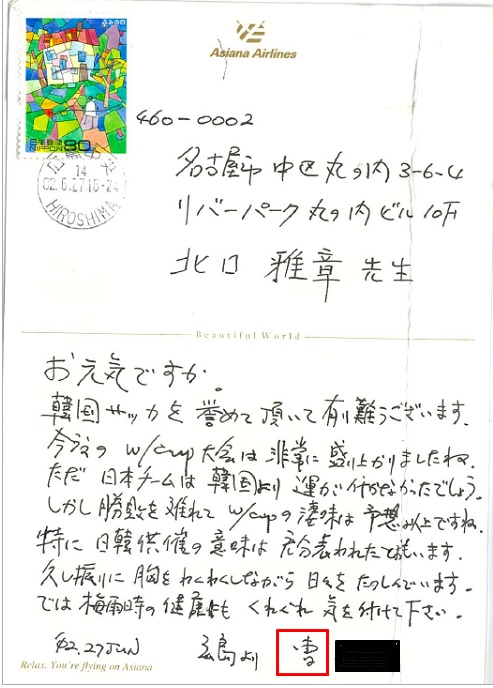 ふみの日
日本郵便
NIPPON 80
Asiana Airlines
14
02.6.27.16-24
HIROSHIMA
460-0002
名古屋市中区丸の内3-6-4
リバーパーク丸の内ビル10F
北口 雅章 先生
Beautiful World
お元気ですか。
韓国サッカを誉めて頂いて有り難うございます.
今度の W/cup 大会は非常に盛り上がりましたね.
ただ日本チームは韓国より運が付かなかったでしょう.
しかし勝敗を離れて W/cupの凄味は予想以上ですね.
特に日韓供催の意味は充分表われたと思います.
久し振りに胸をわくわくしながら日々をたのしんでいます.
では梅雨時の健康にも くれぐれ気を付けて下さい.
'02.27JUN 広島より
Relax, You're flying on Asiana